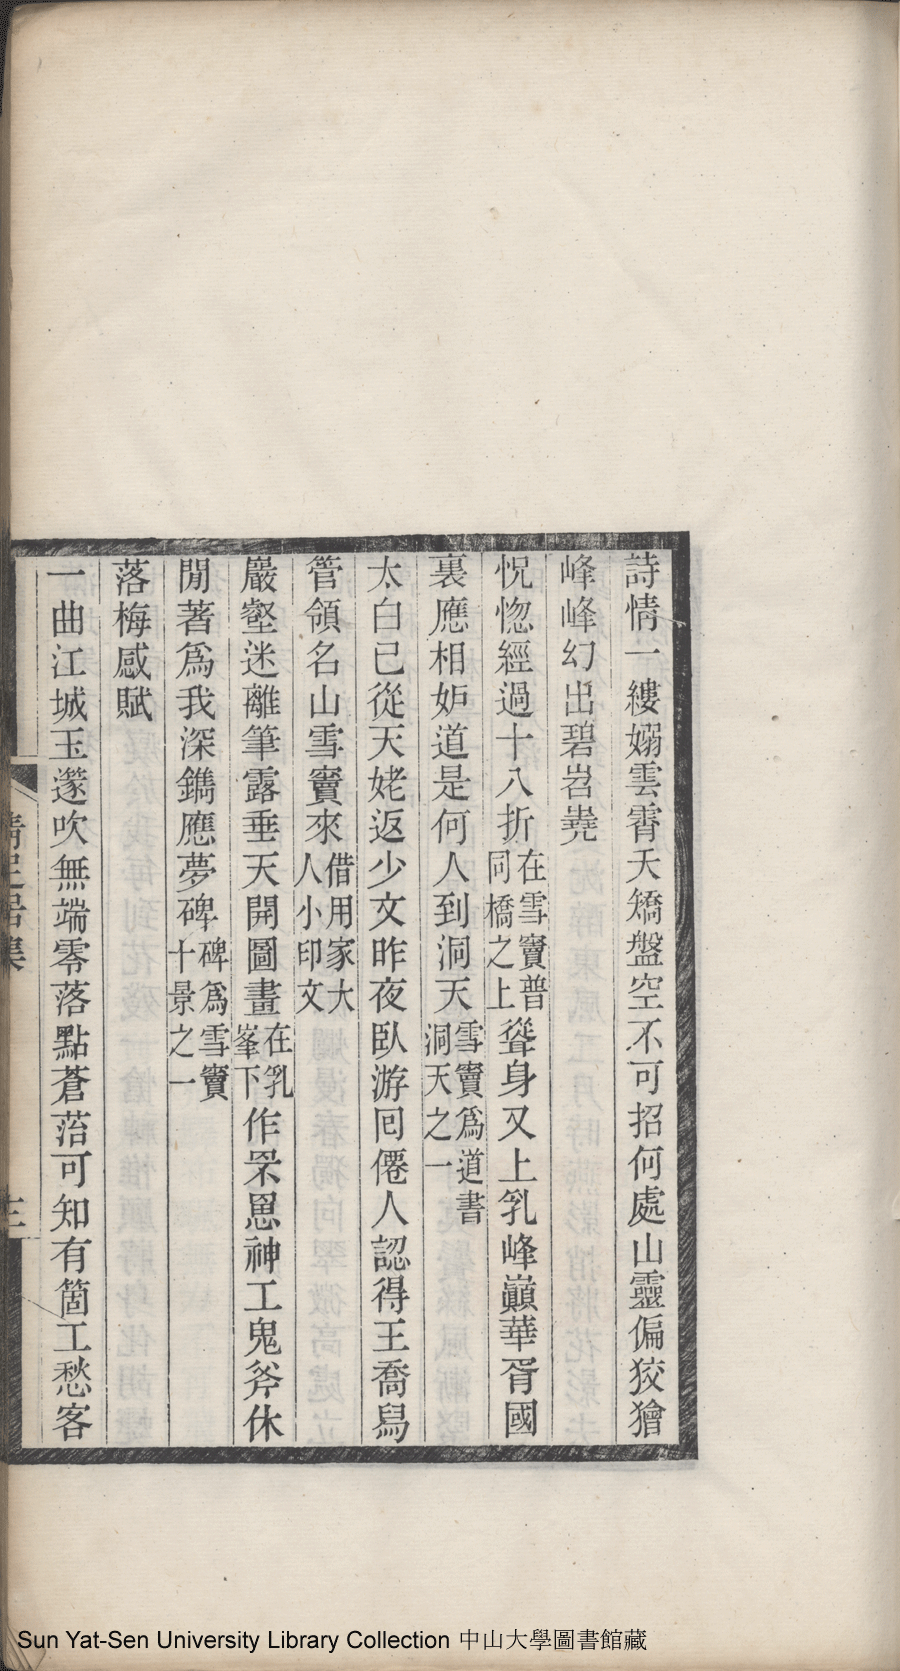 詩情一縷嫋雲霄夭矯盤空不可招何處山靈偏狡獪
峰峰幻出碧岧嶤
怳惚經過十八折在雪竇普同橋之上聳身又上乳峰巔華胥國
裏應相妒道是何人到洞天雪竇爲道書洞天之一
太白已從天姥返少文昨夜臥游回僊人認得王喬舄
管領名山雪竇來借用家大人小印文
巖壑迷離筆露垂天開圖畫在乳峯下作罘罳神工鬼斧休
閒著爲我深鐫應夢碑碑爲雪竇十景之一
落梅感賦
一曲江城玉邃吹無端零落點蒼菭可知有箇工愁客
三
Sun Yat-Sen University Library Collection 中山大學圖書館藏